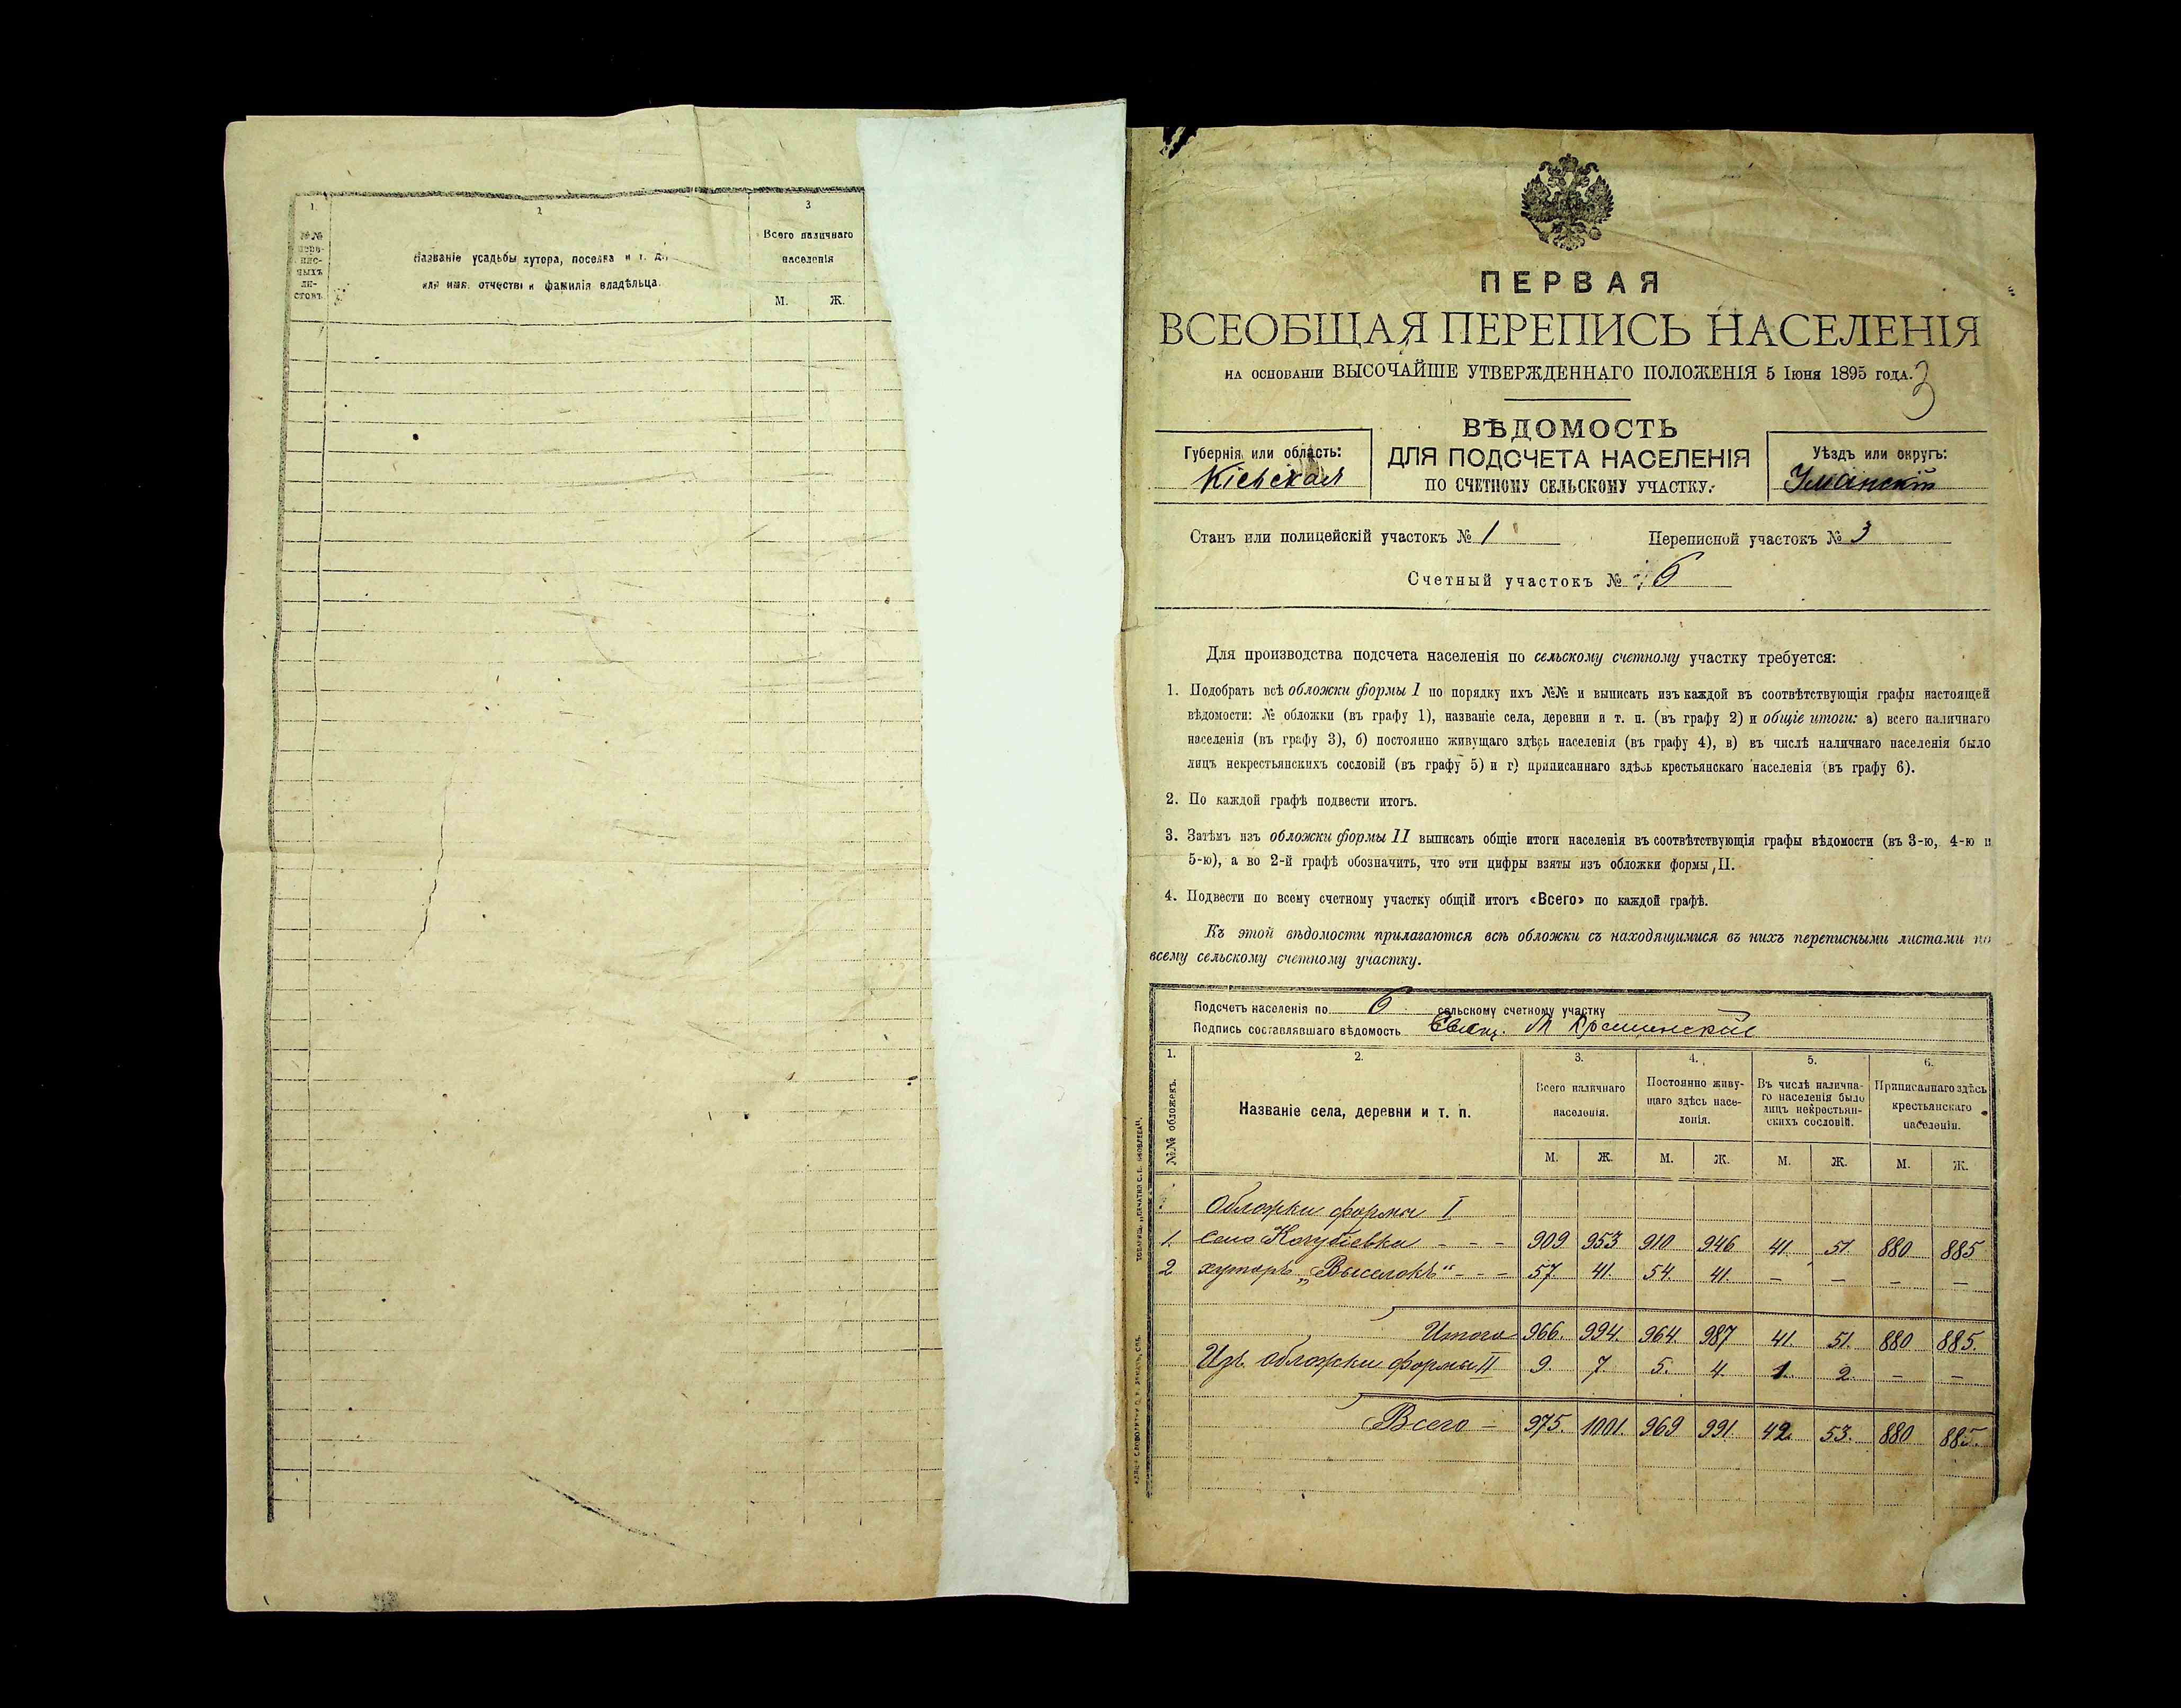 1.
2
3
№№ переписныхъ листовъ
Названіе усадьбы хутора, поселка и т. д.
или имя, отчество и фамилія владѣльца.
Всего наличнаго
населенія
М. Ж.
ПЕРВАЯ
ВСЕОБЩАЯ ПЕРЕПИСЬ НАСЕЛЕНІЯ
НА ОСНОВАНІИ ВЫСОЧАЙШЕ УТВЕРЖДЕННАГО ПОЛОЖЕНІЯ 5 Іюня 1895 ГОДА.
3
ВѢДОМОСТЬ
ДЛЯ ПОДСЧЕТА НАСЕЛЕНІЯ
ПО СЧЕТНОМУ СЕЛЬСКОМУ УЧАСТКУ.
Губернія или область:
Кіевская
Уѣздъ или округъ:
Уманскій
Станъ или полицейскій участокъ № 1 Переписной участокъ № 3
Счетный участокъ № 6
Для производства подсчета населенія по сельскому счетному участку требуется:
1. Подобрать всѣ обложки формы I по порядку ихъ №№ и выписать изъ каждой въ соотвѣтствующія графы настоящей
вѣдомости: № обложки (въ графу 1), названіе села, деревни и т. п. (въ графу 2) и общіе итоги: а) всего наличнаго
населенія (въ графу 3), б) постоянно живущаго здѣсь населенія (въ графу 4), в) въ числѣ наличнаго населенія было
лицъ некрестьянскихъ сословій (въ графу 5) и г) приписаннаго здѣсь крестьянскаго населенія (въ графу 6).
2. По каждой графѣ подвести итогъ.
3. Затѣмъ изъ обложки формы II выписать общіе итоги населенія въ соотвѣтствующія графы вѣдомости (въ 3-ю, 4-ю и
5-ю), а во 2-й графѣ обозначить, что эти цифры взяты изъ обложки формы II.
4. Подвести по всему счетному участку общій итогъ «Всего» по каждой графѣ.
Къ этой вѣдомости прилагаются всѣ обложки съ находящимися въ нихъ переписными листами по
всему сельскому счетному участку.
Подсчетъ населенія по 6 сельскому счетному участку
Подпись составлявшаго вѣдомость Свящ. М
1. 2. 3. 4. 5. 6.
№№ обложекъ.
Названіе села, деревни и т. п.
Всего наличнаго
населенія.
Постоянно живу-
щаго здѣсь насе-
ленія.
Въ числѣ налична-
го населенія было
лицъ некрестьян-
скихъ сословій.
Приписаннаго здѣсь
крестьянскаго
населенія.
М. Ж. М. Ж. М. Ж. М. Ж.
Обложки формы I
1. Село Кочубіевка - - - 909 953 910 946 41 51. 880 885
2 хуторъ „Выселокъ“ - - - 57. 41. 54. 41. — — — —
Итого 966. 994. 964. 987 41. 51. 880 885.
Изъ обложки формы II 9. 7. 5. 4. 1. 2. — —
Всего - 975. 1001. 969 991. 42. 53. 880 885.